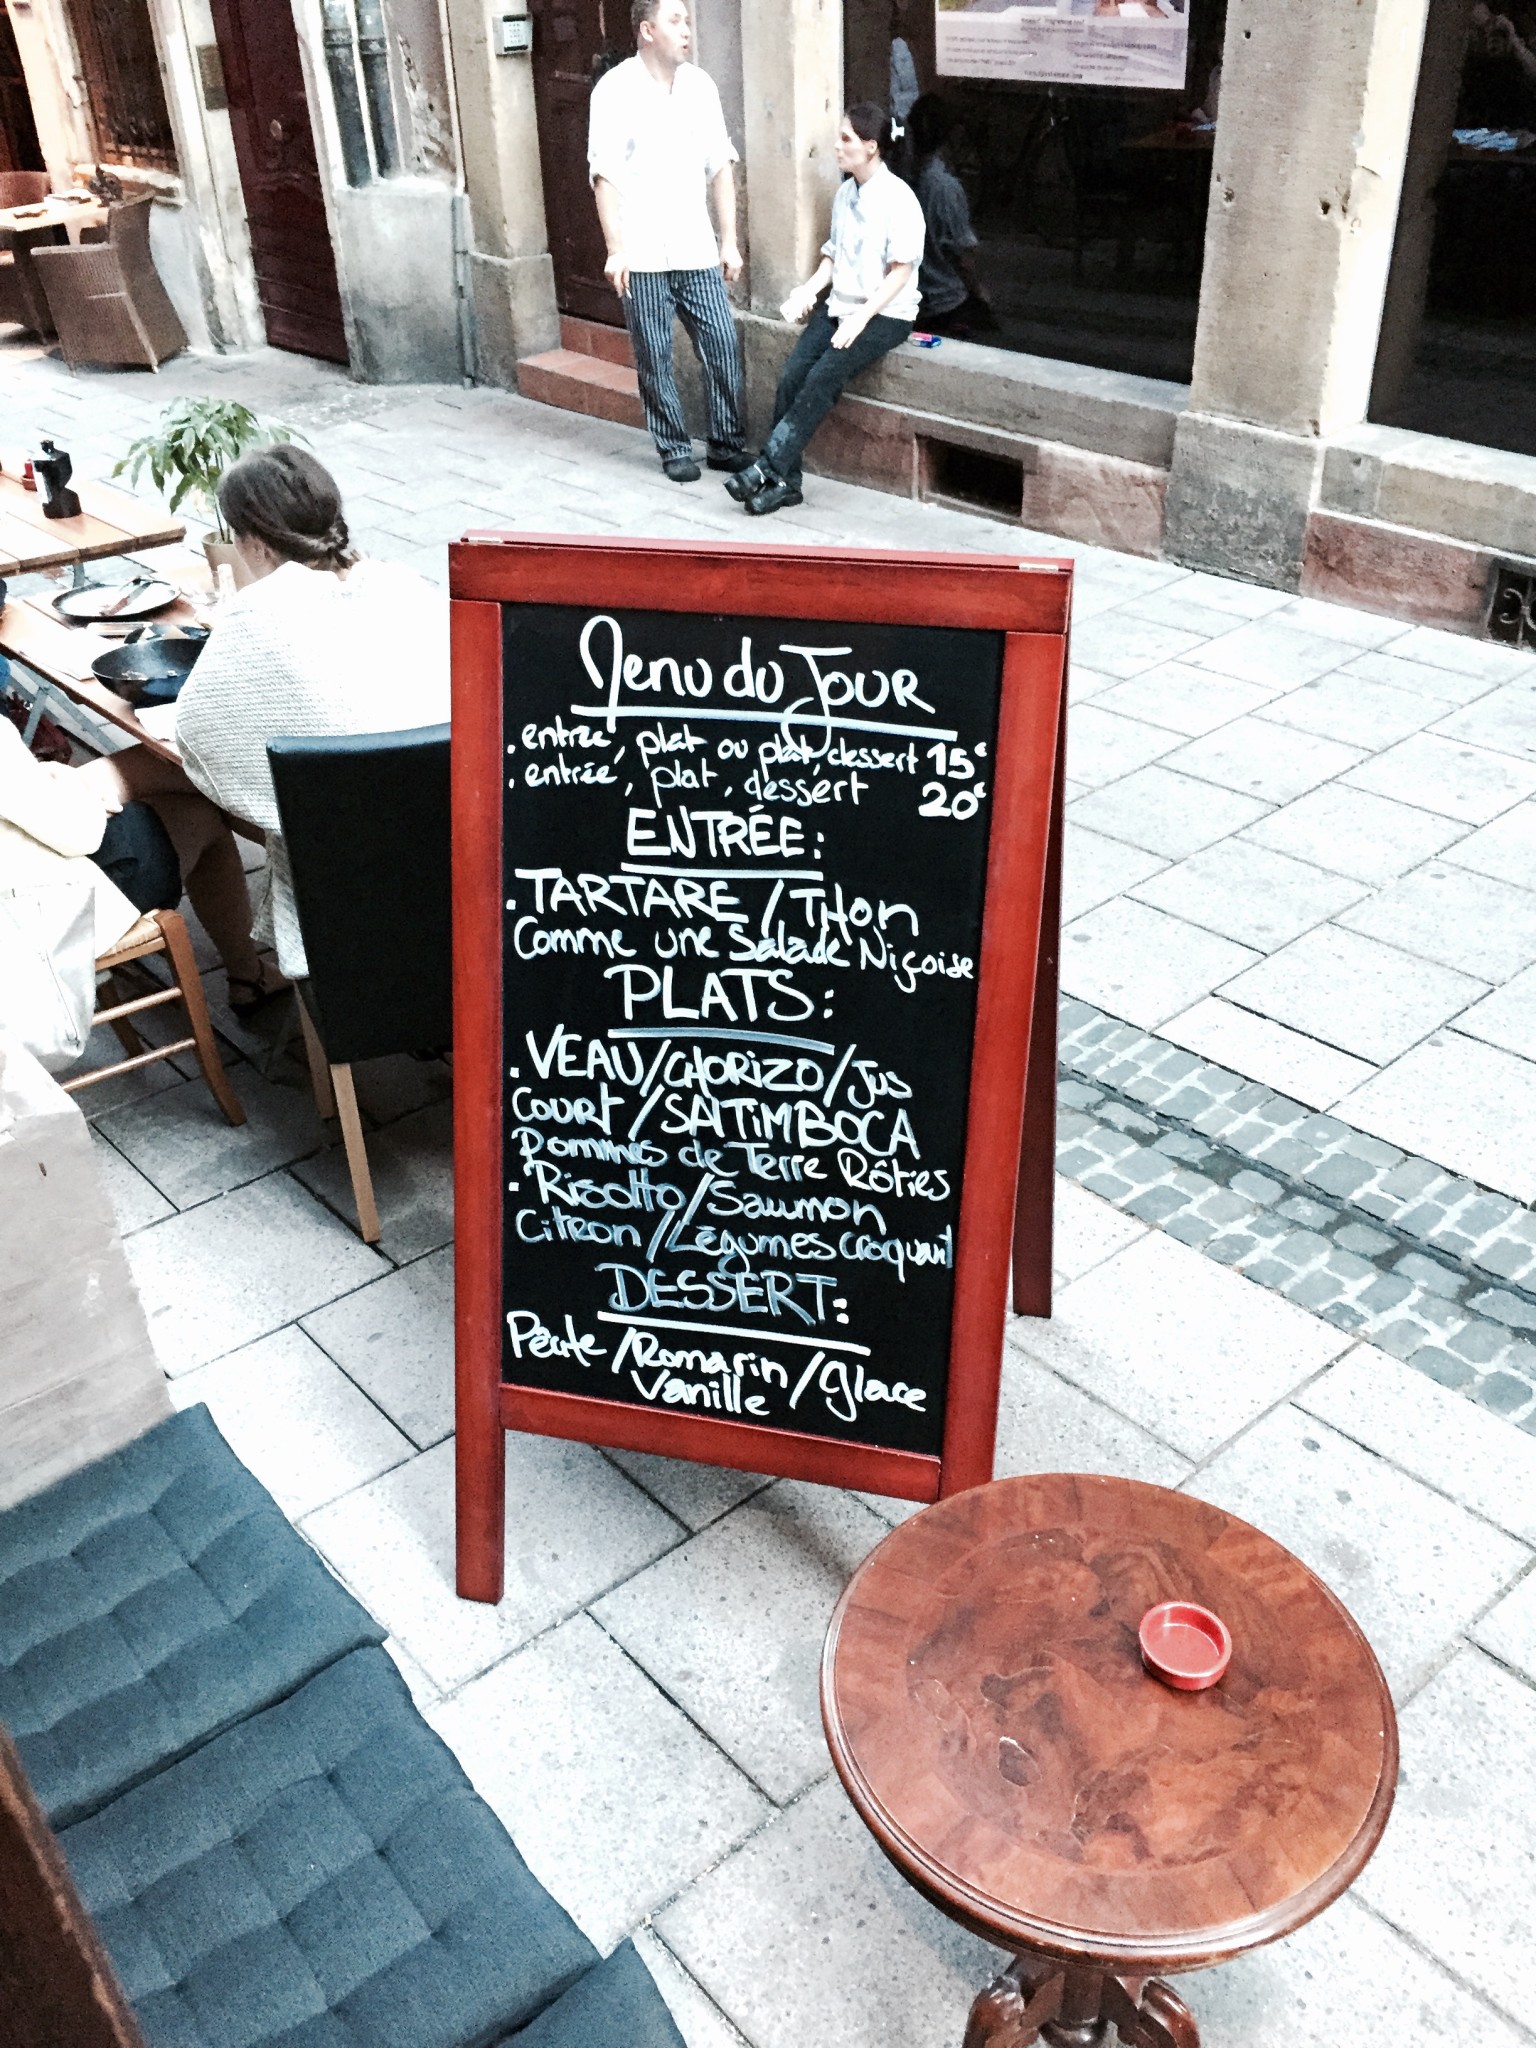 Menu du Jour
. entrée, plat ou plat, dessert 15€
. entrée, plat, dessert 20€
ENTRÉE:
. TARTARE / THon
Comme une Salade Niçoise
PLATS:
. VEAU/CHORIZO/Jus
Court/SALTIMBOCA
Pommes de Terre Rôties
. Risotto/Saumon
Citron/Légumes croquant
DESSERT:
/Romarin/Glace
Vanille